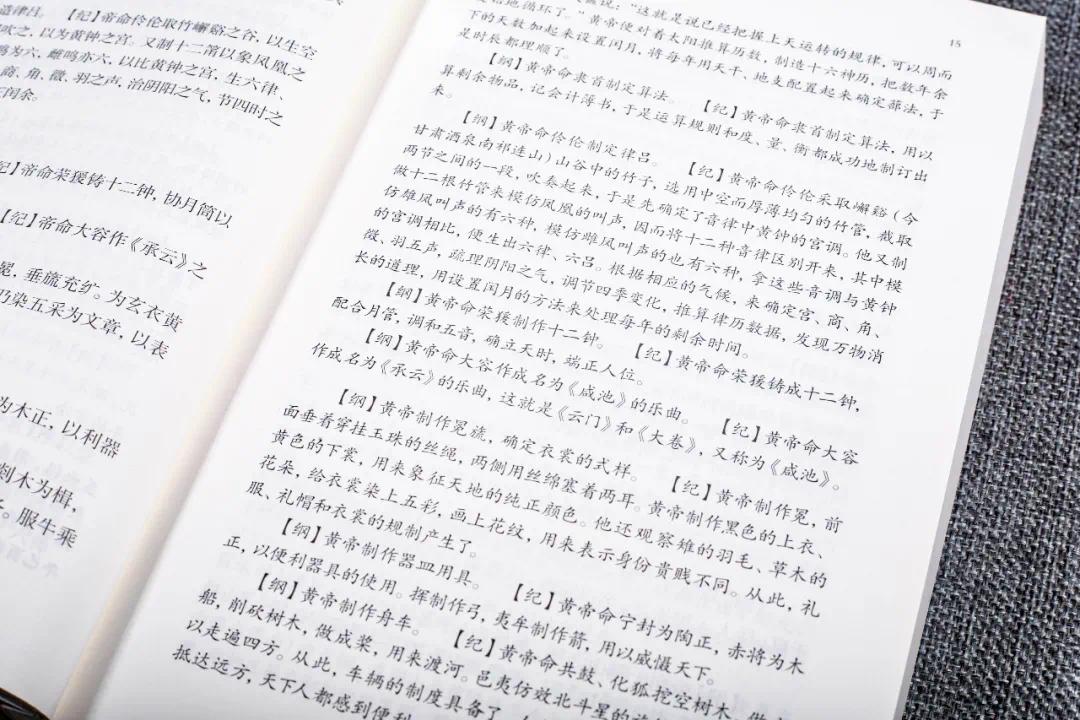 造律吕。【纪】帝命伶伦取竹嶰谿之谷，以生空
吹之，以为黄钟之宫。又制十二筩以象凤凰之
鸣为六，雌鸣亦六，以比黄钟之宫，生六律、
商、角、徵、羽之声，治阴阳之气，节四时之
闰余。
纪】帝命荣猨铸十二钟，协月筒以
【纪】帝命大容作《承云》之
冕，垂旒充纩。为玄衣黄
乃染五采为文章，以表
为木正，以利器
剡木为楫，
服牛乘
15
说：“这就是说已经把握上天运转的规律，可以周而
复始地循环了。”黄帝便对着太阳推算历数，制造十六神历，把数年余
下的天数加起来设置闰月，将每年用天干、地支配置起来确定蔀法，于
是时长都理顺了。
【纲】黄帝命隶首制定算法。 【纪】黄帝命隶首制定算法，用以
算剩余物品，记会计薄书，于是运算规则和度、量、衡都成功地制订出
来。
【纲】黄帝命伶伦制定律吕。 【纪】黄帝命伶伦采取嶰谿（今
甘肃酒泉南祁连山）山谷中的竹子，选用中空而厚薄均匀的竹管，截取
两节之间的一段，吹奏起来，于是先确定了音律中黄钟的宫调。他又制
做十二根竹管来模仿凤凰的叫声，因而将十二种音律区别开来，其中模
仿雄凤叫声的有六种，模仿雌凤叫声的也有六种，拿这些音调与黄钟
的宫调相比，便生出六律、六吕。根据相应的气候，来确定宫、商、角、
徵、羽五声，疏理阴阳之气，调节四季变化，推算律历数据，发现万物消
长的道理，用设置闰月的方法来处理每年的剩余时间。
【纲】黄帝命荣猨制作十二钟。 【纪】黄帝命荣猨铸成十二钟，
配合月管，调和五音，确立天时，端正人位。
【纲】黄帝命大容作成名为《咸池》的乐曲。 【纪】黄帝命大容
作成名为《承云》的乐曲，这就是《云门》和《大卷》，又称为《咸池》。
【纲】黄帝制作冕旒，确定衣裳的式样。 【纪】黄帝制作冕，前
面垂着穿挂玉珠的丝绳，两侧用丝绵塞着两耳。黄帝制作黑色的上衣、
黄色的下裳，用来象征天地的纯正颜色。他还观察雉的羽毛、草木的
花朵，给衣裳染上五彩，画上花纹，用来表示身份贵贱不同。从此，礼
服、礼帽和衣裳的规制产生了。
【纲】黄帝制作器皿用具。 【纪】黄帝命宁封为陶正，赤将为木
正，以便利器具的使用。挥制作弓，夷牟制作箭，用以威慑天下。
【纲】黄帝制作舟车。 【纪】黄帝命共鼓、化狐挖空树木，做
船，削砍树木，做成桨，用来渡河。邑夷仿效北斗星的
以走遍四方。从此，车辆的制度具备了
抵达远方，天下人都感到便利